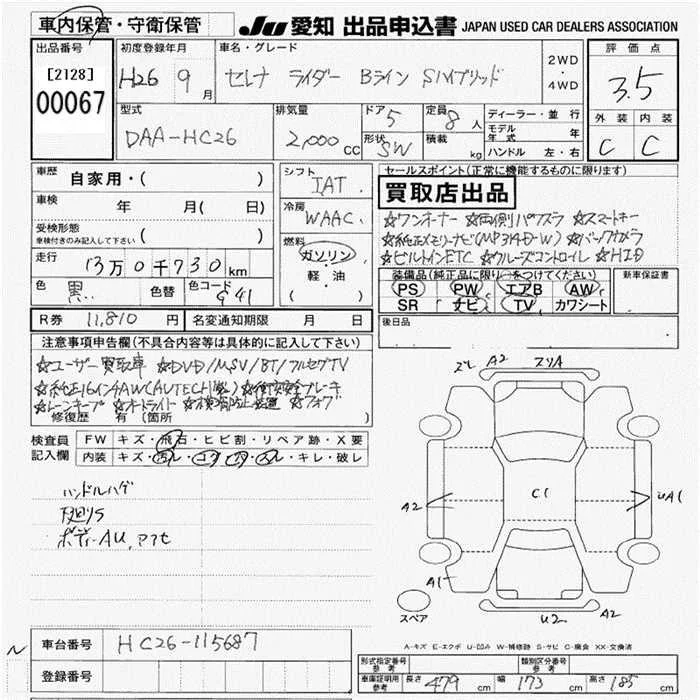 車内保管・守衛保管
JU 愛知 出品申込書 JAPAN USED CAR DEALERS ASSOCIATION
出品番号
[2128]
00067
初度登録年月
H26 9月
車名・グレード
セレナ ライダー Bライン Sハイブリッド
2WD
・
4WD
評価点
3.5
外装 内装
C C
型式
DAA-HC26
排気量
2,000cc
ドア 5
形状 SW
定員 8人
積載 kg
ディーラー・並行
モデル年式 年
ハンドル 左・右
車歴 自家用・( )
車検 年 月( 日)
受検形態
車検付きのみ記入して下さい ( )
走行 13万0千730km
色 黒 色替 色コード G41
シフト
IAT
冷房
WAAC
燃料
ガソリン
軽・油
( )
セールスポイント(正常に機能するものに限ります)
買取店出品
☆ワンオーナー ☆両側パワスラ ☆スマートキー
☆純正メモリーナビ(MP314D-W) ☆バックカメラ
☆ビルトインETC ☆クルーズコントロイル ☆HID
装備品(純正品に限り○をつけてください)
PS PW エアB AW
SR ナビ TV カワシート
新車保証書
後日品
R券 11,810円 名変通知期限 月 日
注意事項申告欄(不具合内容等は具体的に記入して下さい)
☆ユーザー買取車 ☆DVD/MSV/BT/フルセグTV
☆純正16インチAW(AUTECH) ☆衝突安全ブレーキ
☆レーンキープ ☆オートライト ☆横滑防止装置 ☆フォグ
修復歴 有(箇所 )
検査員
記入欄
FW キズ・飛石・ヒビ割・リペア跡・X要
内装 キズ・汚レ・コゲ・穴・スレ・キレ・破レ
ハンドルハゲ
ボディーAU,
ズレ A2 ズリA
A2 C1 UA1
A1 A2
U2
スペア
A-キズ E-エクボ U-凹み W-補修跡 S-サビ C-腐食 XX-交換済
車台番号 HC26-115687
登録番号
型式指定番号 参考
類別区分番号 参考
車庫証明用 参考 長さ 479cm 幅 173cm 高さ 185cm